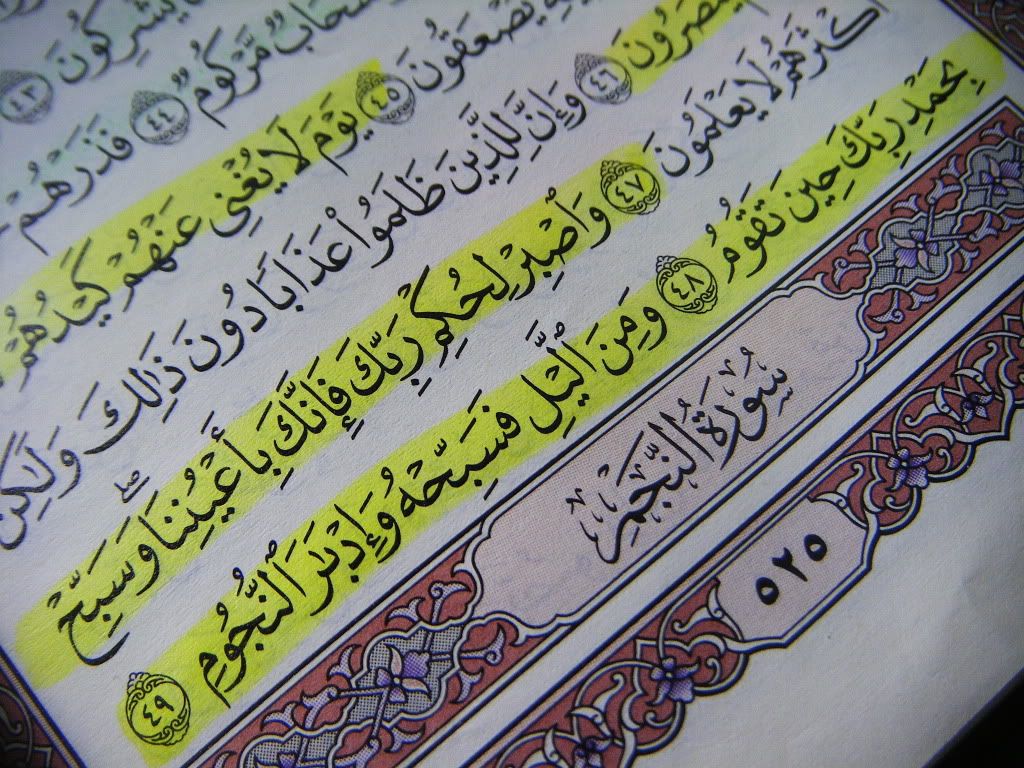 يُشْرِكُونَ ٤٣
سَحَابٌ مَّرْكُومٌ ٤٤ فَذَرْهُمْ
يُصْعَقُونَ ٤٥ يَوْمَ لَا يُغْنِى عَنْهُمْ كَيْدُهُمْ
يُنصَرُونَ ٤٦ وَإِنَّ لِلَّذِينَ ظَلَمُوا۟ عَذَابًا دُونَ ذَٰلِكَ وَلَٰكِنَّ
أَكْثَرَهُمْ لَا يَعْلَمُونَ ٤٧ وَٱصْبِرْ لِحُكْمِ رَبِّكَ فَإِنَّكَ بِأَعْيُنِنَا ۖ وَسَبِّحْ
بِحَمْدِ رَبِّكَ حِينَ تَقُومُ ٤٨ وَمِنَ ٱلَّيْلِ فَسَبِّحْهُ وَإِدْبَٰرَ ٱلنُّجُومِ ٤٩
سُورَةُ النَّجْمِ
٥٢٥